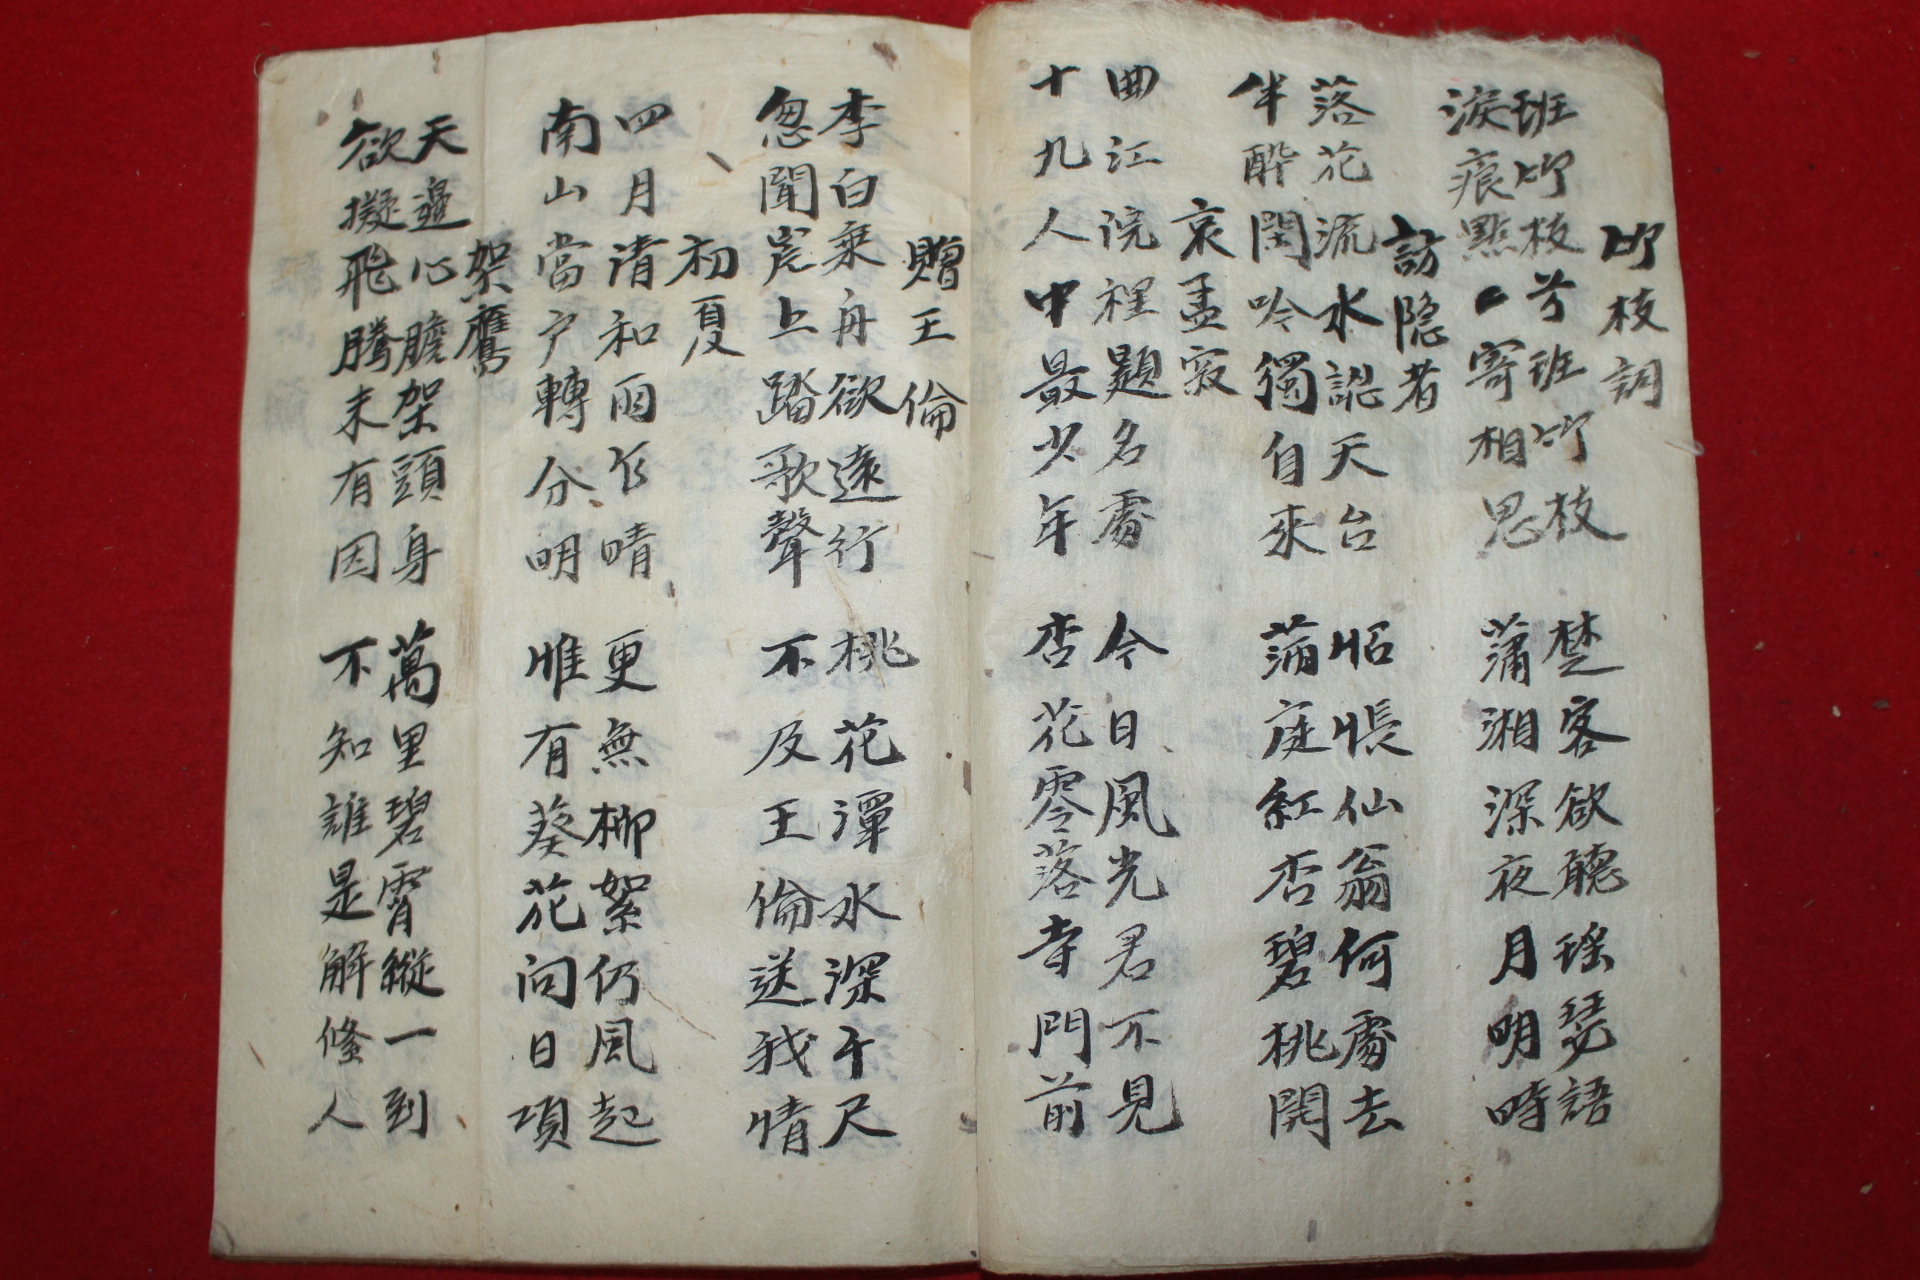 竹枝詞
班竹枝兮班竹枝
淚痕點〃寄相思
楚客欲聽瑤瑟語
蒲湘深夜月明時
訪隐者
落花流水認天台
半醉閑吟獨自來
怊悵仙翁何處去
蒲庭紅杏碧桃開
哀孟寂
曲江院裡題名處
十九人中最少年
今日風光君不見
杏花零落寺門前
贈王倫
李白乘舟欲遠行
忽聞岸上踏歌聲
桃花潭水深千尺
不及王倫送我情
初夏
四月清和雨乍晴
南山當户轉分明
更無柳絮仍風起
惟有葵花向日項
架鷹
天邊心膽架頭身
欲擬飛騰未有因
萬里碧霄縱一到
不知誰是解絛人